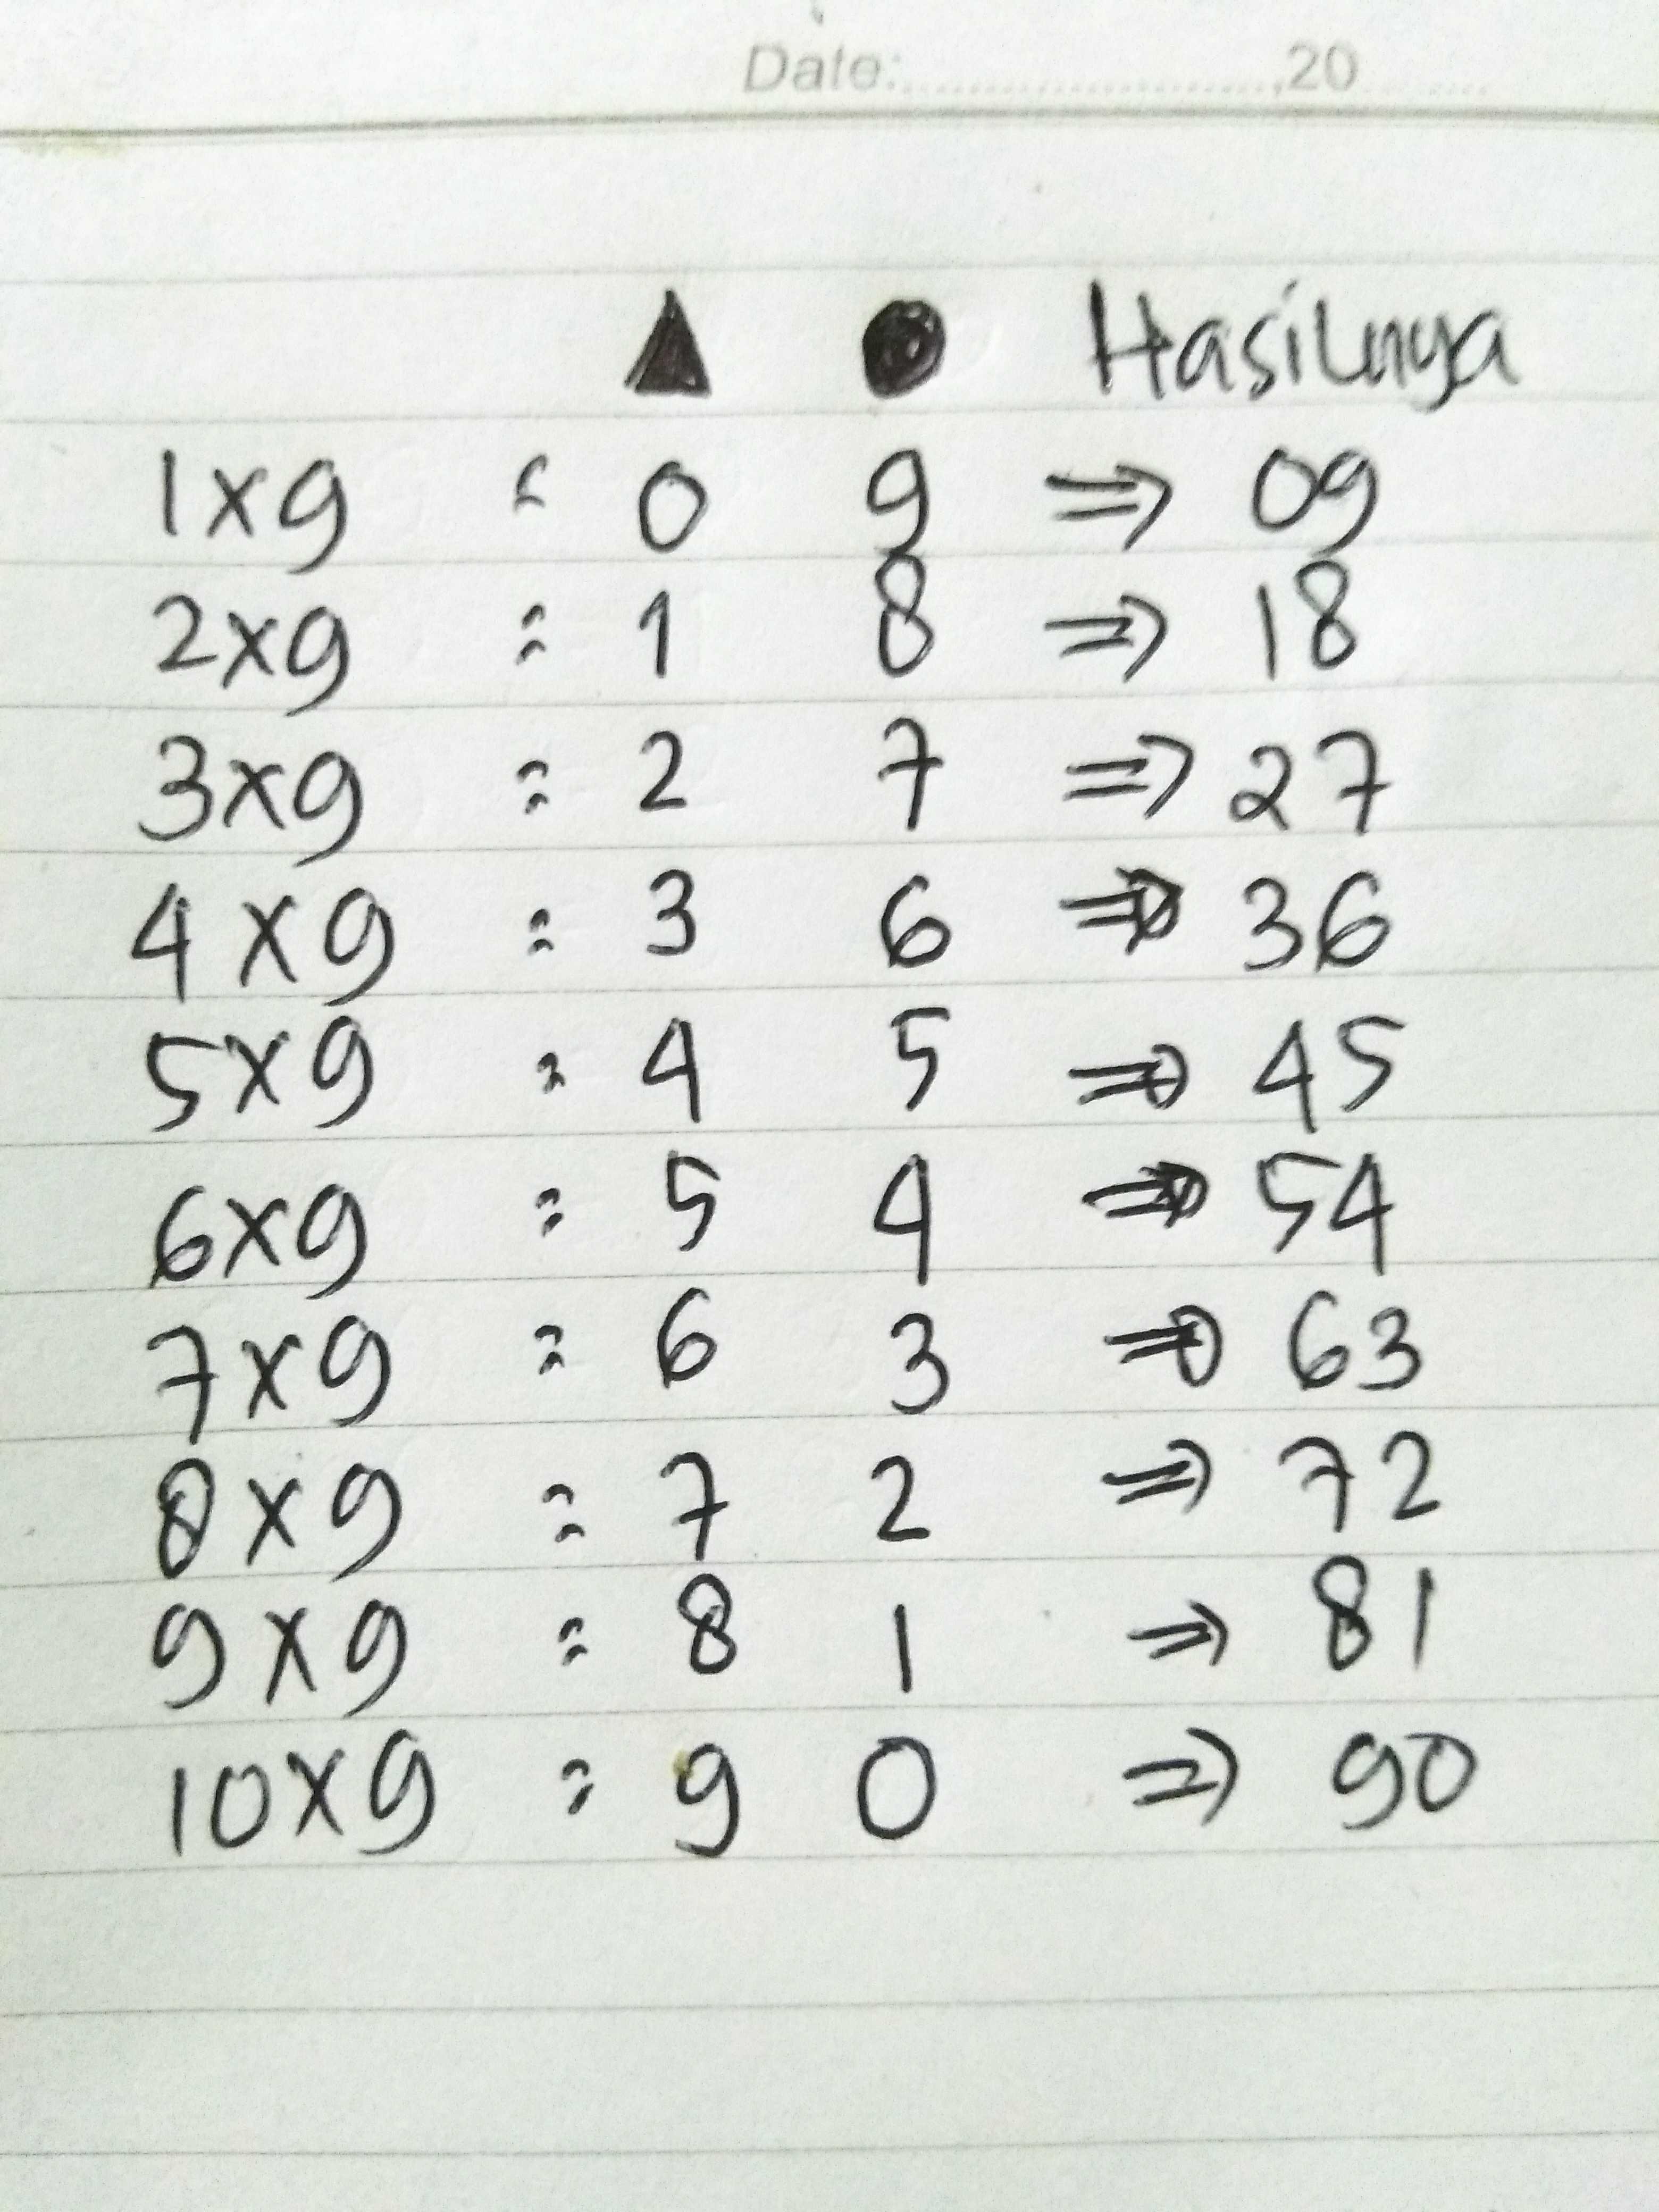 Date:........................,20........
▲ ● Hasilnya
1x9 = 0 9 => 09
2x9 = 1 8 => 18
3x9 = 2 7 => 27
4x9 = 3 6 => 36
5x9 = 4 5 => 45
6x9 = 5 4 => 54
7x9 = 6 3 => 63
8x9 = 7 2 => 72
9x9 = 8 1 => 81
10x9 = 9 0 => 90